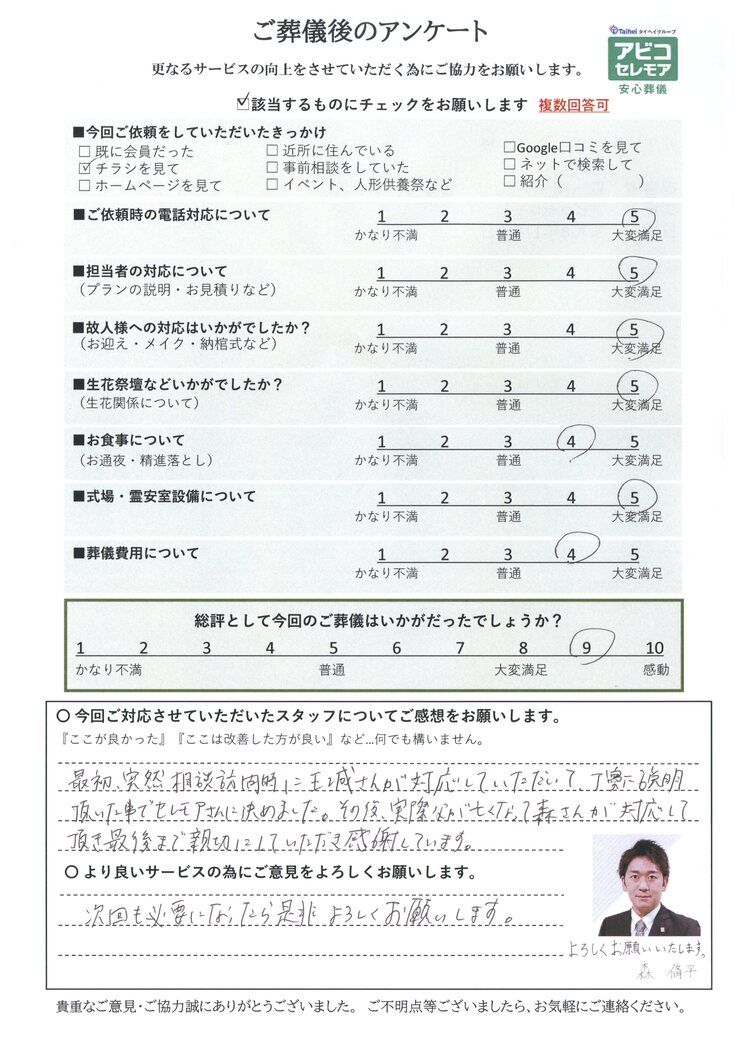 ご葬儀後のアンケート
Taihei タイヘイグループ
アビコ
セレモア
安心葬儀
更なるサービスの向上をさせていただく為にご協力をお願いします。
☑該当するものにチェックをお願いします 複数回答可
■今回ご依頼をしていただいたきっかけ
□ 既に会員だった □ 近所に住んでいる □Google口コミを見て
☑ チラシを見て □ 事前相談をしていた □ ネットで検索して
□ ホームページを見て □ イベント、人形供養祭など □ 紹介（ ）
■ご依頼時の電話対応について 1 2 3 4 5
かなり不満 普通 大変満足
■担当者の対応について 1 2 3 4 5
（プランの説明・お見積りなど） かなり不満 普通 大変満足
■故人様への対応はいかがでしたか？ 1 2 3 4 5
（お迎え・メイク・納棺式など） かなり不満 普通 大変満足
■生花祭壇などいかがでしたか？ 1 2 3 4 5
（生花関係について） かなり不満 普通 大変満足
■お食事について 1 2 3 4 5
（お通夜・精進落とし） かなり不満 普通 大変満足
■式場・霊安室設備について 1 2 3 4 5
かなり不満 普通 大変満足
■葬儀費用について 1 2 3 4 5
かなり不満 普通 大変満足
総評として今回のご葬儀はいかがだったでしょうか？
1 2 3 4 5 6 7 8 9 10
かなり不満 普通 大変満足 感動
〇 今回ご対応させていただいたスタッフについてご感想をお願いします。
『ここが良かった』『ここは改善した方が良い』など…何でも構いません。
最初、突然相談訪問時に玉城さんが対応していただいて、丁寧に説明
頂いた事でセレモアさんに決めました。その後、実際な　が亡くなって森さんが対応して
頂き最後まで親切にしていただき感謝しています。
〇 より良いサービスの為にご意見をよろしくお願いします。
次回も必要になったら是非よろしくお願いします。
よろしくお願いいたします。
森 脩平
貴重なご意見・ご協力誠にありがとうございました。 ご不明点等ございましたら、お気軽にご連絡ください。